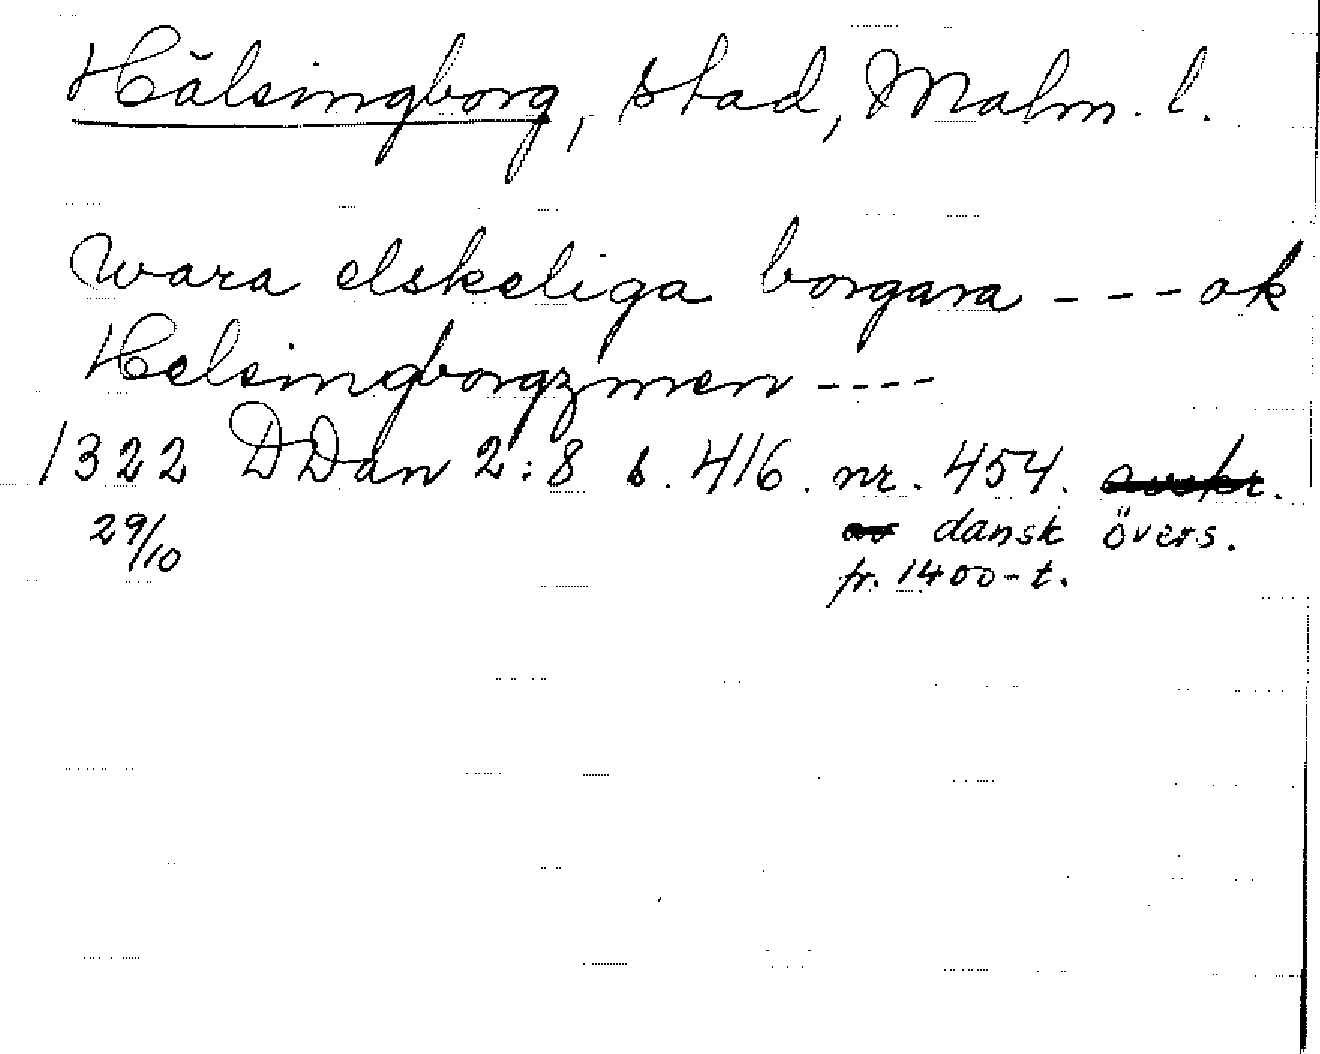 Hälsingborg, stad, Malm. l.
Wara elskeliga borgara - - - ok
Helsingborgzmen - - - -
1322 DDan 2:8 s. 416. nr. 454.
29/10 dansk övers.
fr. 1400-t.